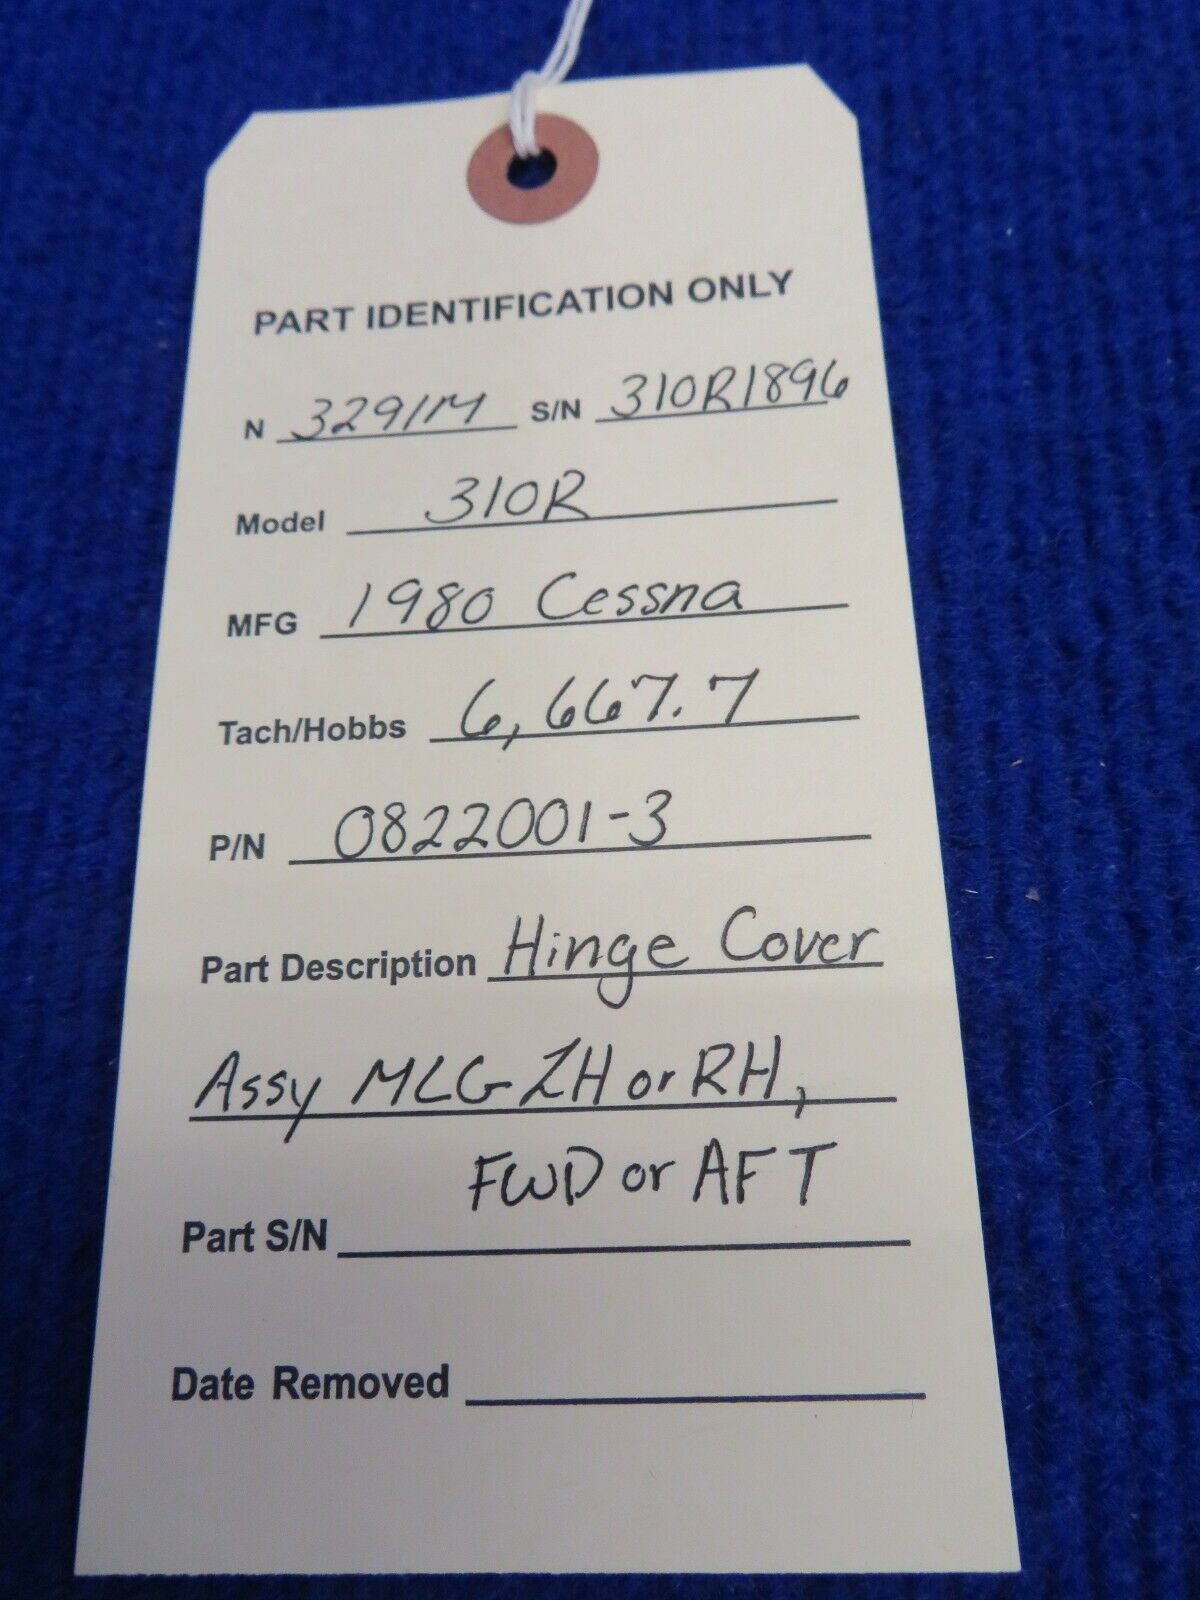 PART IDENTIFICATION ONLY
N 3291M S/N 310R1896
Model 310R
MFG 1980 Cessna
Tach/Hobbs 6,667.7
P/N 0822001-3
Part Description Hinge Cover
Assy MLG LH or RH,
FWD or AFT
Part S/N
Date Removed